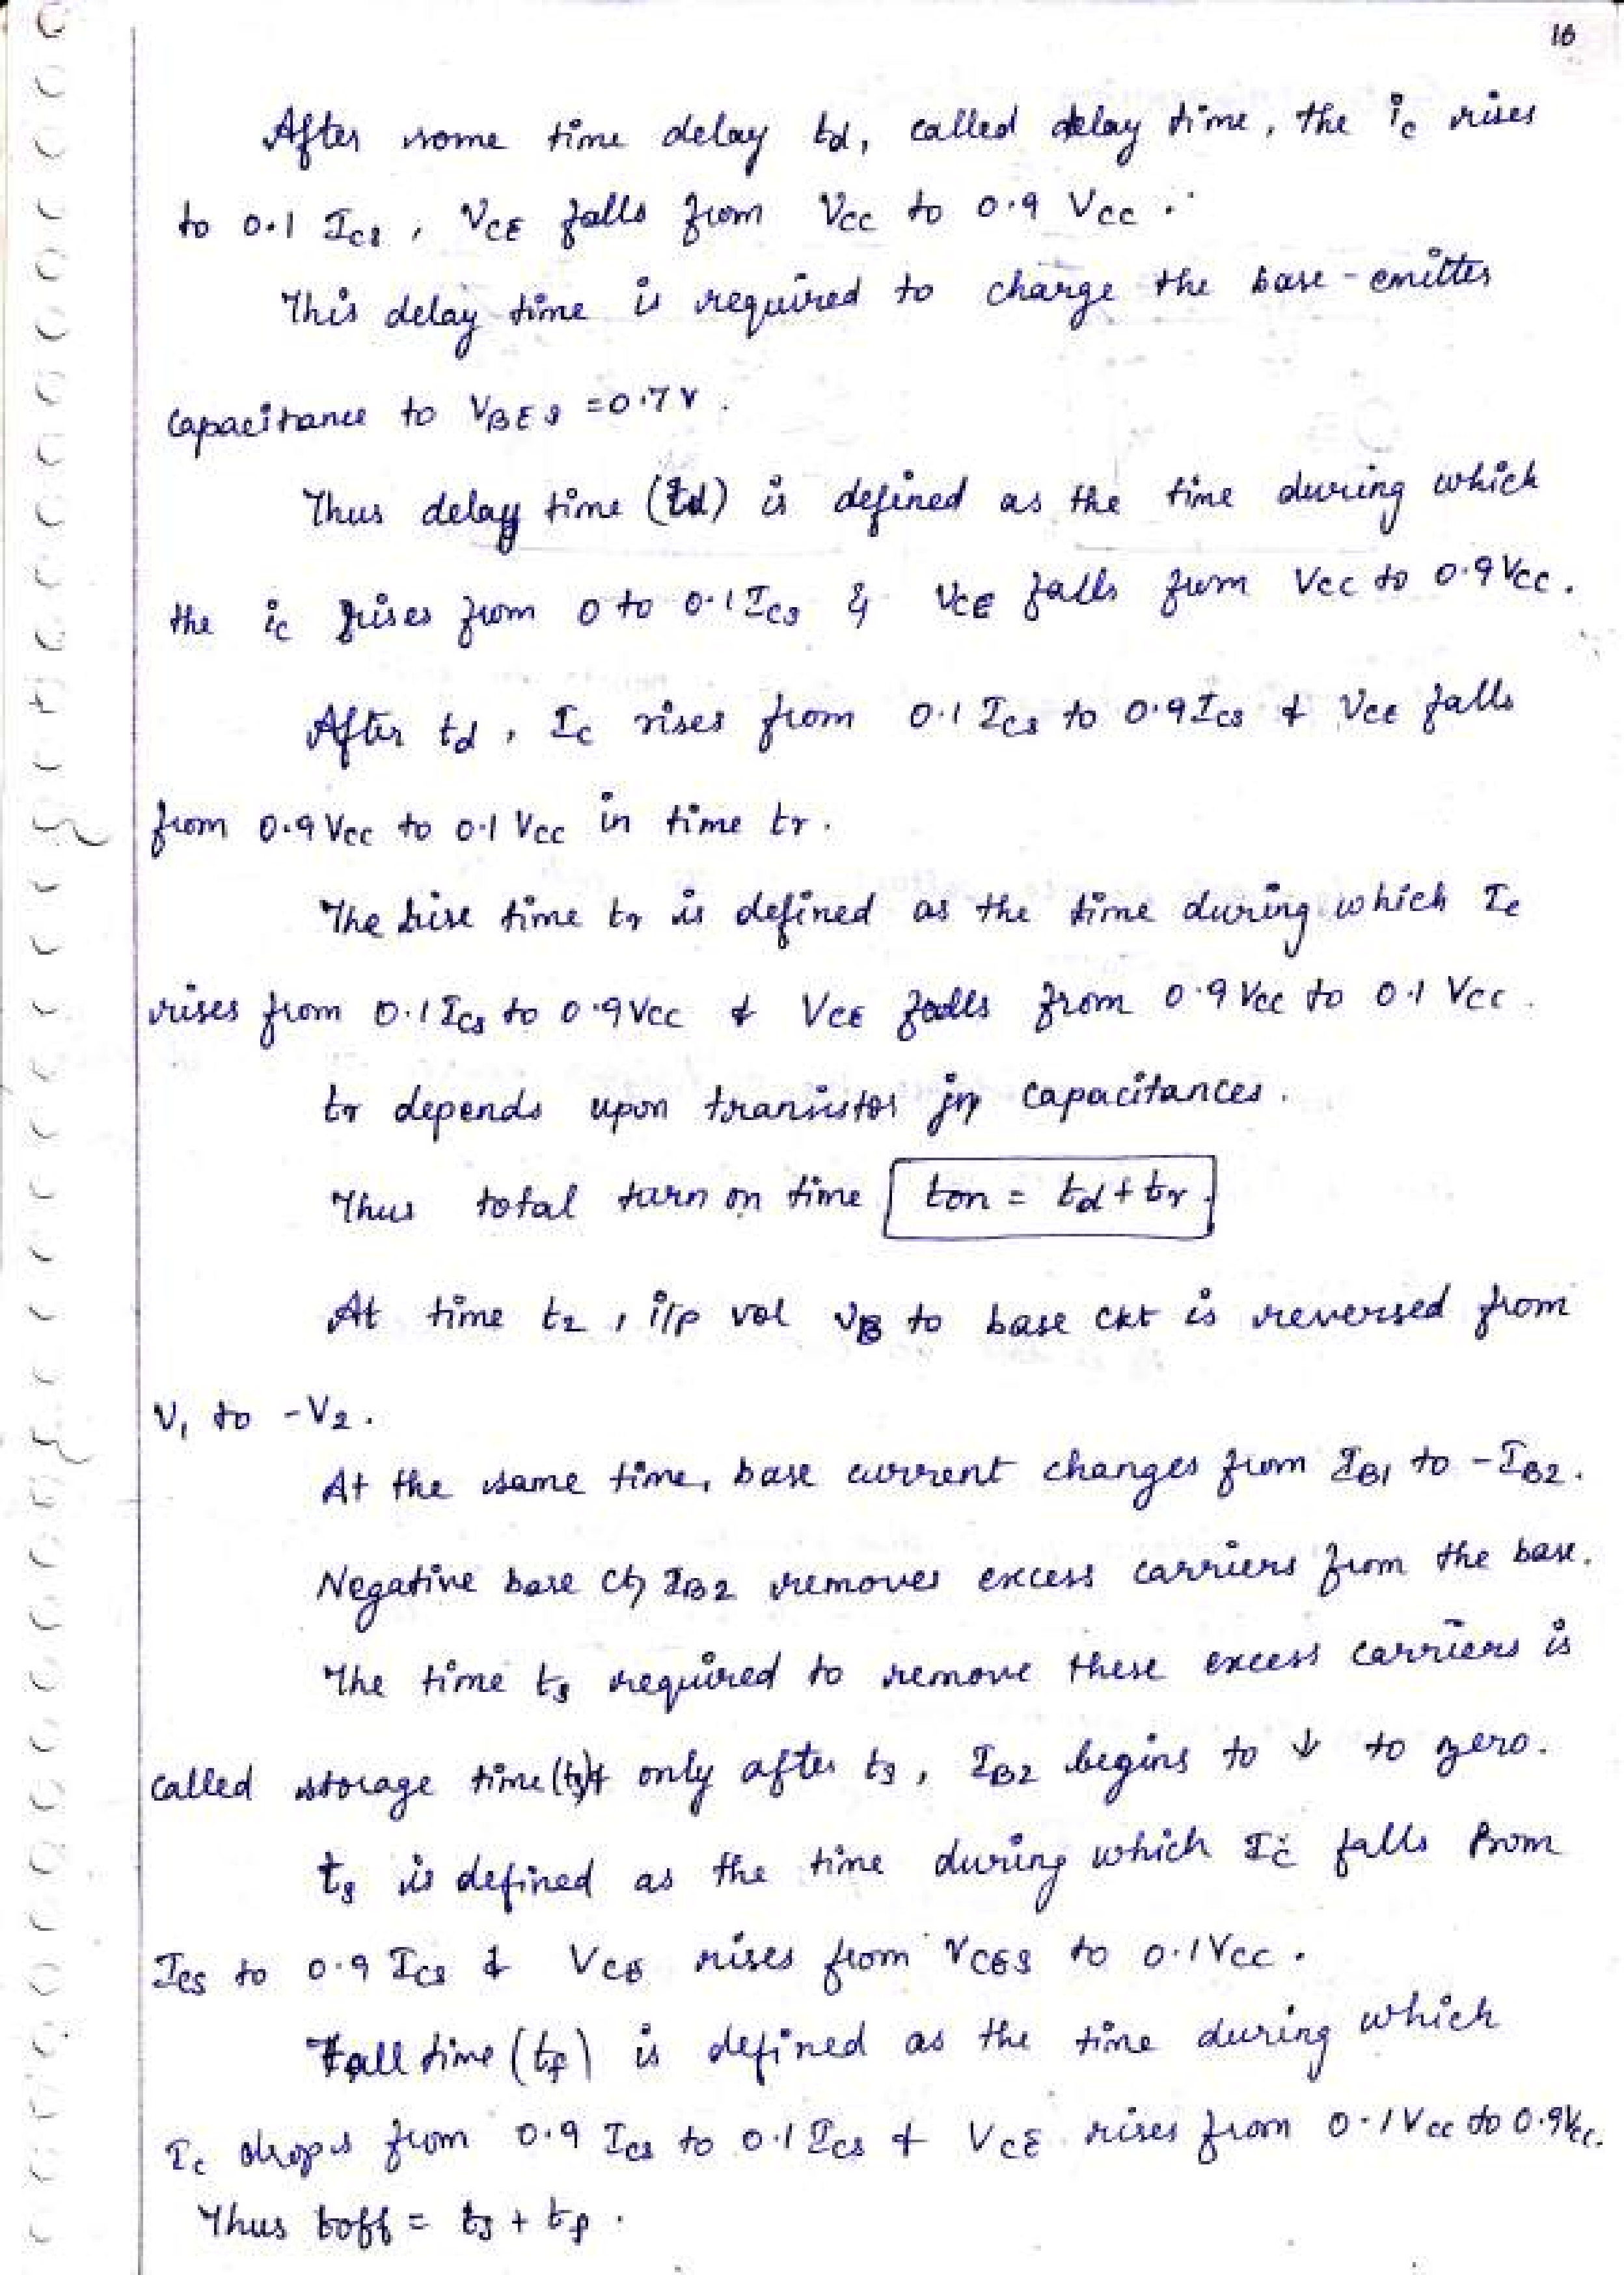 10
After some time delay td, called delay time, the ic rises
to 0.1 ICS, VCE falls from VCC to 0.9 VCC.
This delay time is required to charge the base-emitter
Capacitance to VBES = 0.7V.
Thus delay time (td) is defined as the time during which
the ic rises from 0 to 0.1 ICS & VCE falls from VCC to 0.9 VCC.
After td, Ic rises from 0.1 ICS to 0.9 ICS & VCE falls
from 0.9 VCC to 0.1 VCC in time tr.
The rise time tr is defined as the time during which Ic
rises from 0.1 ICS to 0.9 VCC & VCE falls from 0.9 VCC to 0.1 VCC.
tr depends upon transistor jn capacitances.
Thus total turn on time ton = td + tr.
At time t2, i/p vol VB to base ckt is reversed from
V1 to -V2.
At the same time, base current changes from IB1 to -IB2.
Negative base IB2 removes excess carriers from the base.
The time ts required to remove these excess carriers is
called storage time (ts) & only after ts, IB2 begins to ↓ to zero.
ts is defined as the time during which Ic falls from
ICS to 0.9 ICS & VCE rises from VCES to 0.1 VCC.
Fall time (tf) is defined as the time during which
Ic drops from 0.9 ICS to 0.1 ICS & VCE rises from 0.1 VCC to 0.9 VCC.
Thus toff = ts + tf.